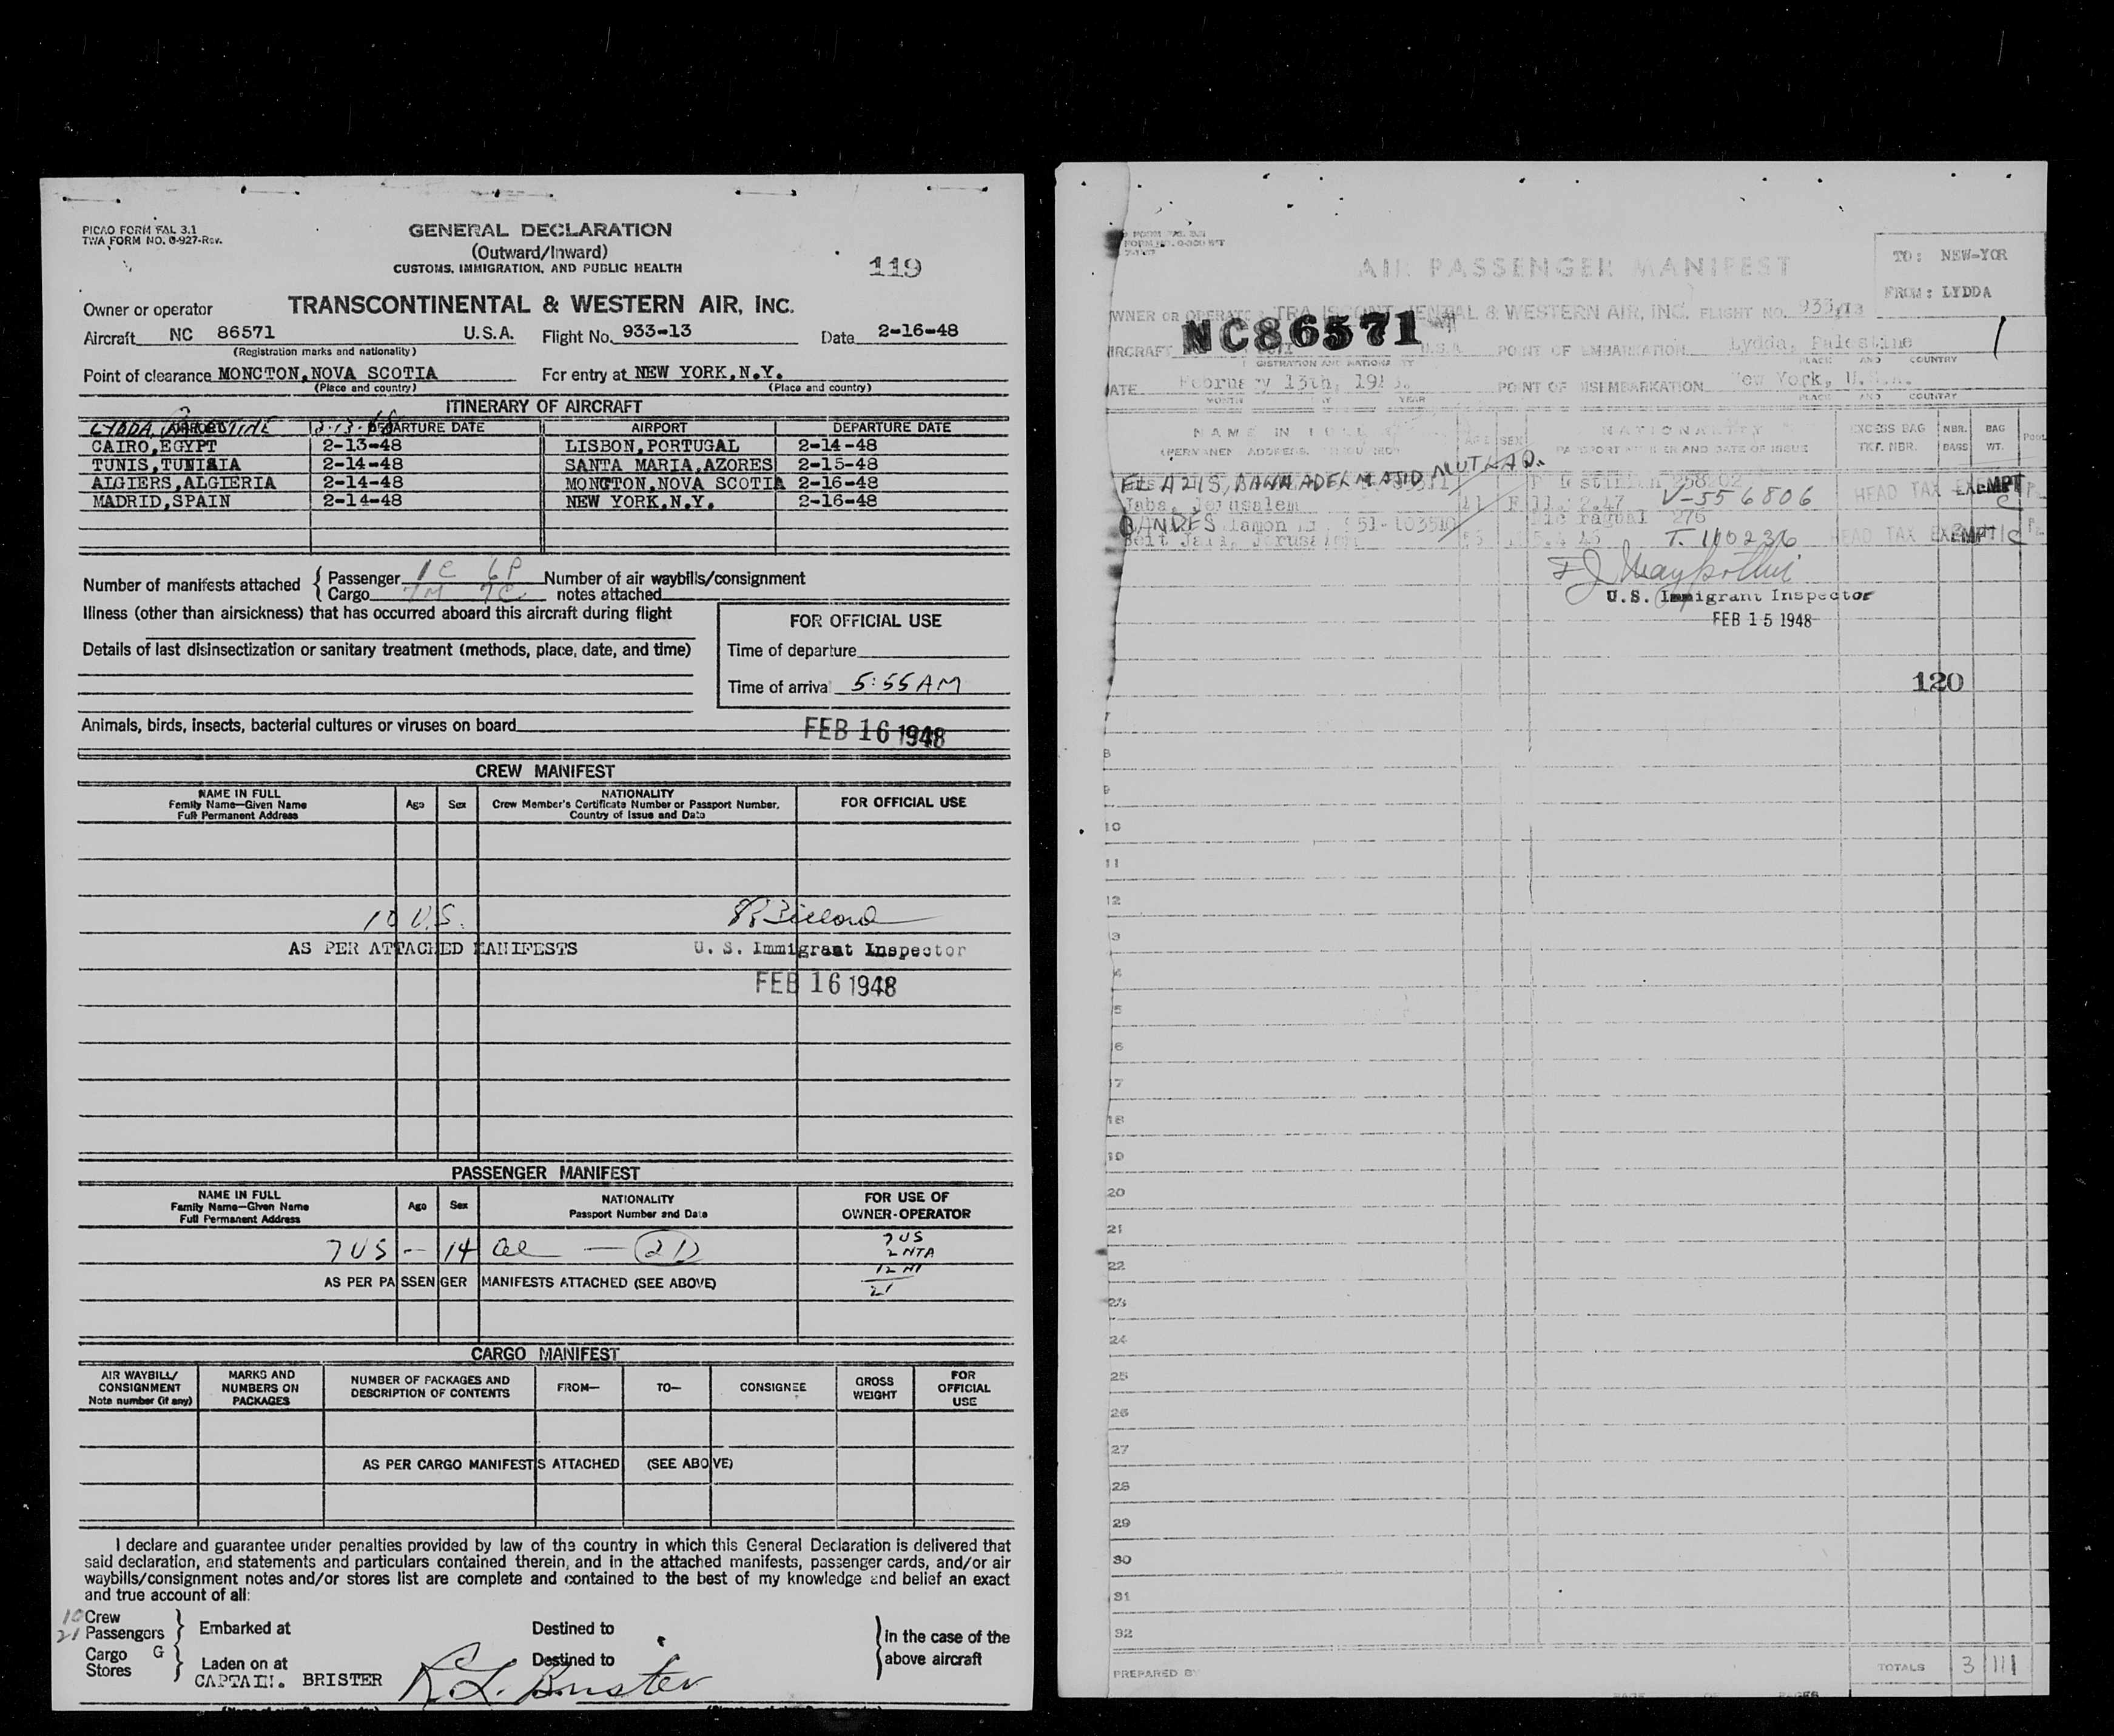 PICAO FORM FAL 3.1
TWA FORM NO. O-927-Rev.
GENERAL DECLARATION
(Outward/Inward)
CUSTOMS, IMMIGRATION, AND PUBLIC HEALTH
119
Owner or operator TRANSCONTINENTAL & WESTERN AIR, INC.
Aircraft NC 86571 U.S.A. Flight No. 933-13 Date 2-16-48
(Registration marks and nationality)
Point of clearance MONCTON, NOVA SCOTIA For entry at NEW YORK, N.Y.
(Place and country) (Place and country)
ITINERARY OF AIRCRAFT
AIRPORT DEPARTURE DATE AIRPORT DEPARTURE DATE
LYDDA, PALESTINE 2-13-48
CAIRO, EGYPT 2-13-48 LISBON, PORTUGAL 2-14-48
TUNIS, TUNISIA 2-14-48 SANTA MARIA, AZORES 2-15-48
ALGIERS, ALGIERIA 2-14-48 MONCTON, NOVA SCOTIA 2-16-48
MADRID, SPAIN 2-14-48 NEW YORK, N.Y. 2-16-48
Number of manifests attached { Passenger 1C 6P Number of air waybills/consignment
Cargo 7M 7C notes attached
Illness (other than airsickness) that has occurred aboard this aircraft during flight
FOR OFFICIAL USE
Details of last disinsectization or sanitary treatment (methods, place, date, and time)
Time of departure
Time of arrival 5:55 AM
Animals, birds, insects, bacterial cultures or viruses on board
FEB 16 1948
CREW MANIFEST
NAME IN FULL
Family Name—Given Name
Full Permanent Address
Age Sex
NATIONALITY
Crew Member's Certificate Number or Passport Number,
Country of Issue and Date
FOR OFFICIAL USE
10 U.S.
AS PER ATTACHED MANIFESTS
U. S. Immigrant Inspector
FEB 16 1948
PASSENGER MANIFEST
NAME IN FULL
Family Name—Given Name
Full Permanent Address
Age Sex
NATIONALITY
Passport Number and Date
FOR USE OF
OWNER-OPERATOR
7 US — 14 al — 21
7 US
2 NTA
12 NI
21
AS PER PASSENGER MANIFESTS ATTACHED (SEE ABOVE)
CARGO MANIFEST
AIR WAYBILL/
CONSIGNMENT
Note number (if any)
MARKS AND
NUMBERS ON
PACKAGES
NUMBER OF PACKAGES AND
DESCRIPTION OF CONTENTS
FROM— TO— CONSIGNEE
GROSS
WEIGHT
FOR
OFFICIAL
USE
AS PER CARGO MANIFESTS ATTACHED (SEE ABOVE)
I declare and guarantee under penalties provided by law of the country in which this General Declaration is delivered that
said declaration, and statements and particulars contained therein, and in the attached manifests, passenger cards, and/or air
waybills/consignment notes and/or stores list are complete and contained to the best of my knowledge and belief an exact
and true account of all:
10 Crew
21 Passengers
Embarked at Destined to
Cargo G
Stores
Laden on at Destined to
In the case of the
above aircraft
CAPTAIN. BRISTER R. L. Brister
AIR PASSENGER MANIFEST
TO: NEW-YOR
FROM: LYDDA
OWNER OR OPERATOR TRANSCONTINENTAL & WESTERN AIR, INC. FLIGHT NO. 933,13
NC86571
AIRCRAFT U.S.A. POINT OF EMBARKATION Lydda, Palestine
PLACE AND COUNTRY
DATE February 13th, 1948. POINT OF DISEMBARKATION New York, U.S.A.
MONTH DAY YEAR PLACE AND COUNTRY
NAME IN FULL
AGE SEX
NATIONALITY
PASSPORT NUMBER AND DATE OF ISSUE
EXCESS BAG
TKT. NBR.
NBR.
BAGS
BAG
WT.
258202
Jaba, Jerusalem 11 F V-556806
HEAD TAX EXEMPT
BANDES 276
Beit Jala, Jerusalem T. 110236
HEAD TAX EXEMPT
U.S. Immigrant Inspector
FEB 15 1948
120
7
8
9
10
11
12
13
14
15
16
17
18
19
20
21
22
23
24
25
26
27
28
29
30
31
32
PREPARED BY
TOTALS 3